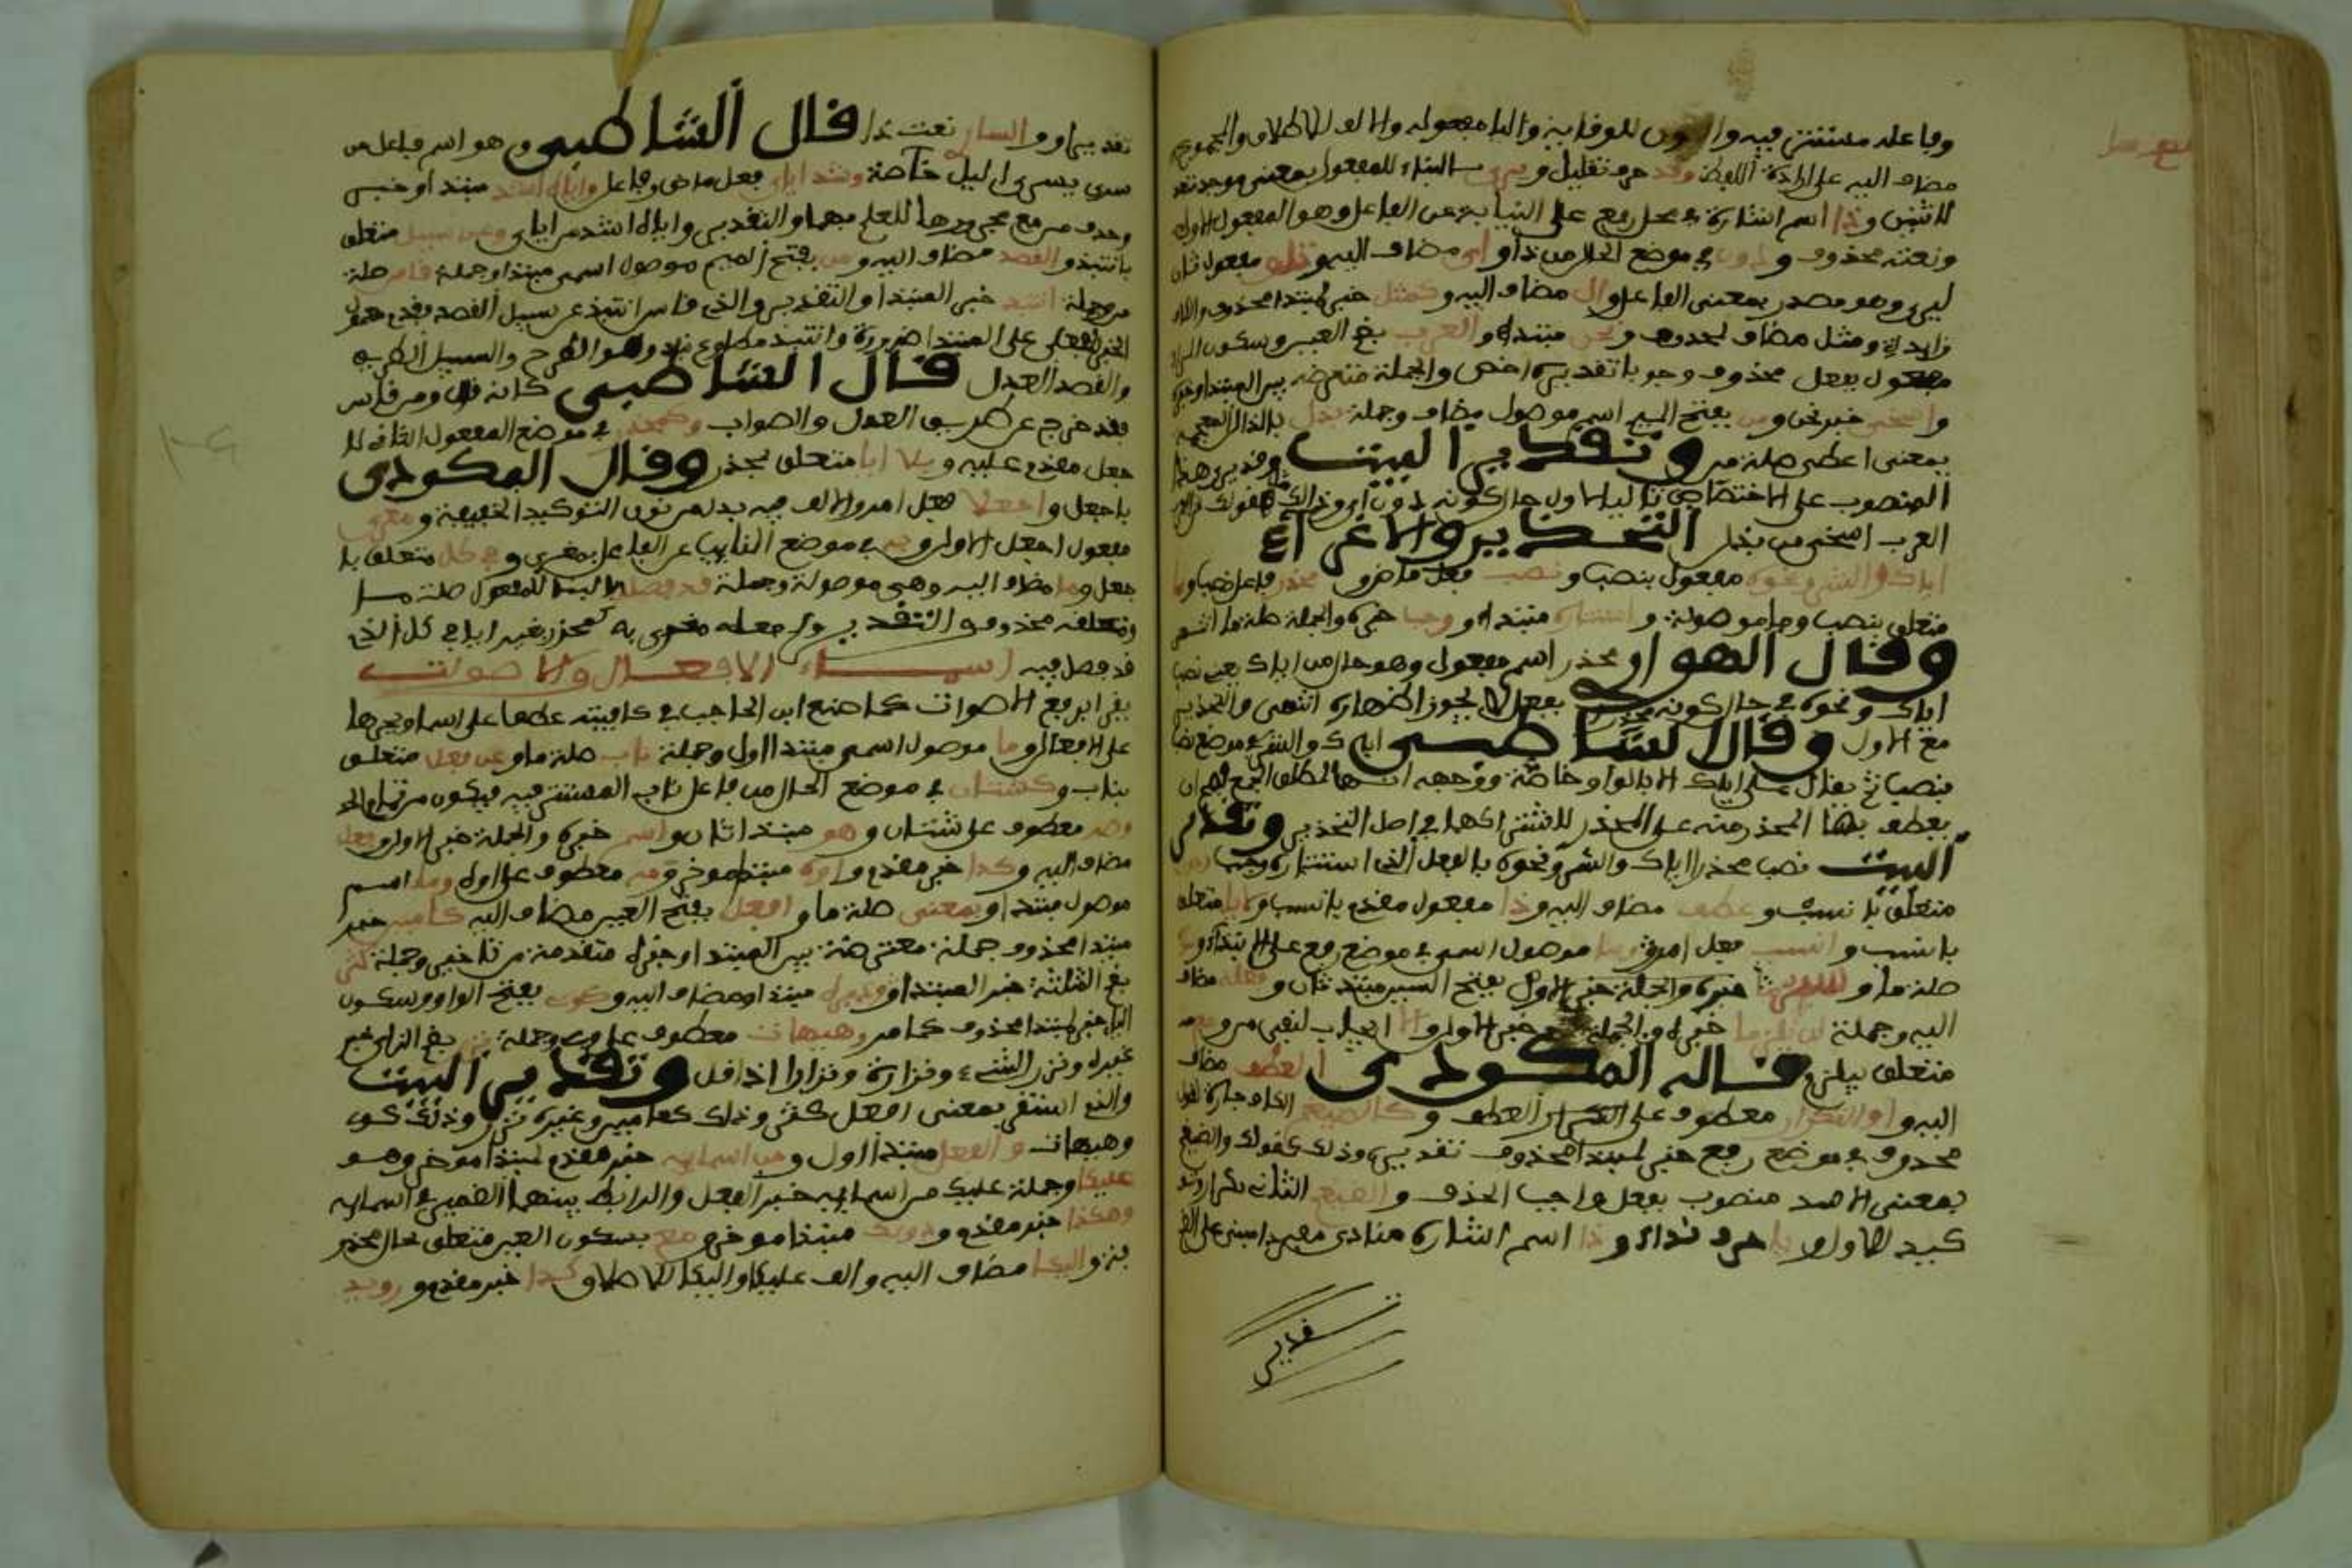 وفاعله مستتر فيه والنون للوقاية واليا مفعوله والالف للاطلاق والمجموع
مضاف اليه على ارادة اللفظ وقد حرف تقليل ويرى بالبناء للمفعول بمعنى يوجد تعد
لاثنين وذا اسم اشارة في محل رفع على النيابة عن الفاعل وهو المفعول الاول
ونعته محذوف ودون في موضع الحال من ذا واى مضاف اليه وتلو مفعول ثان
ليرى وهو مصدر بمعنى الفاعل وال مضاف اليه وكمثل خبر لمبتدا محذوف والكاف
زايدة ومثل مضاف لمحذوف ونحن مبتدا والعرب بضم العين وسكون الراء
مفعول بفعل محذوف وجوبا تقديره اخص والجملة معترضة بين المبتدا وخبره
واسخى خبر نحن ومن بفتح الميم اسم موصول مضاف وجملة بذل بالذال المعجمة
بمعنى اعطى صلة من وتقدير البيت وقد يرى هذا
المنصوب على الاختصاص تاليا لال حال كونه دون اى وذلك مثل قولك نحن
العرب اسخى من بذل التحذير والاغراء
اياك والشر ونحوه مفعول بنصب ونصب فعل ماض ومحذر فاعل نصب وبما
متعلق بنصب وما موصولة واستتاره مبتدا ووجب خبره والجملة صلة ما انتهى
وقال الهوارى محذر اسم مفعول وهو حال من اياك يعنى نصب
اياك ونحوه في حال كونه محذرا بفعل لا يجوز اظهاره انتهى والتحذير
مع الاول وقال الشاطبي اياك والشر في موضع نصب
بنصب ثم يقال على اياك الا بالواو خاصة ووجهه انها لمطلق الجمع
يعطف بها المحذر منه على المحذر لاشتراكهما في اصل التحذير وتقدير
البيت نصب محذر اياك والشر ونحوه بالفعل الذى استتاره وجب ودون
متعلق بانسب وعطف مضاف اليه وذا مفعول مقدم بانسب ولايا متعلق
بانسب وانسب فعل امر وما موصول اسمى في موضع رفع على الابتداء
صلة ما وستر خبره والجملة خبر الاول بفتح السين مبتدا ثان وفعله مضاف
اليه وجملة لن يلزما خبره والجملة خبر الاول والا ايجاب لنفى مر ومع
متعلق بيلزم قاله المكودى والعطف مضاف
اليه او والتكرار معطوف على العطف وكالضيغم الكاف جارة لقول
محذوف في موضع رفع خبر لمبتدا محذوف تقديره وذلك كقولك والضيغم
بمعنى الاسد منصوب بفعل واجب الحذف والضيغم الثاني تكرار وتو
كيد للاول ويا حرف نداء وذا اسم اشارة منادى مفرد مبنى على الضم
تقديره
تقديرا والسار نعت ذا قال الشاطبي وهو اسم فاعل من
سرى يسرى الليل خاصة وشذ اياى فعل ماض وفاعل واياه اشذ مبتدا وخبر
وحذف من مع مجرورها للعلم بهما والتقدير واياه اشذ من اياى وعن سبيل متعلق
بانتبذ والقصد مضاف اليه ومن بفتح الميم موصول اسمى مبتدا وجملة قاس صلة
من وجملة انتبذ خبر المبتدا والتقدير والذى قاس انتبذ عن سبيل القصد فقدم معمول
الخبر الفعلى على المبتدا ضرورة وانتبذ مطاوع نبذ وهو الطرح والسبيل الطريق
والقصد العدل قال الشاطبي كانه قال ومن قاس
فقد خرج عن طريق العدل والصواب وكمحذر في موضع المفعول الثانى لا
جعل مقدم عليه وبلا ايا متعلق بمحذر وقال المكودى
باجعل واجعلا فعل امر والالف فيه بدل من نون التوكيد الخفيفة ومغرى
مفعول اجعل الاول وبه في موضع النايب عن الفاعل بمغرى وفي كل متعلق با
جعل وما مضاف اليه وهى موصولة وجملة قد فصلا بالبنا للمفعول صلة ما
ومتعلقه محذوف والتقدير واجعله مغرى به كمحذر بغير ايا في كل الذى
قد فصل فيه اسماء الافعال والاصوات
يقرا برفع الاصوات كما صنع ابن الحاجب في كافيته عطفا على اسما وبجرها
على الافعال وما موصول اسمى مبتدا اول وجملة ناب صلة ما وعن فعل متعلق
بناب وكشتان في موضع الحال من فاعل ناب المستتر فيه فيكون من تمام الحد
وصه معطوف على شتان وهو مبتدا ثان واسم خبره والجملة خبر الاول وفعل
مضاف اليه وكذا خبر مقدم واوه مبتدا موخر ومه معطوف على اوه وما اسم
موصول مبتدا وبمعنى صلة ما وافعل بفتح العين مضاف اليه كامين خبر
مبتدا محذوف جملة معترضة بين المبتدا وخبره متقدمة من تا خبر وجملة كثر
بضم المثلثة خبر المبتدا وغيره مبتدا ومضاف اليه وكوى بفتح الواو وسكون
اليا خبر لمبتدا محذوف كما مر وهيهات معطوف على وى وجملة نزر بضم الزاى خبر
غيره ونزر الشىء ونزارة ونزارا اذا قل وتقدير البيت
والذى استقر بمعنى افعل كثر وذلك كامين وغيره نزر وذلك كوى
وهيهات والفعل مبتدا اول ومن اسمايه خبر مقدم لمبتدا موخر وهو
عليكا وجملة عليك من اسمايه خبر الفعل والرابط بينهما الضمير في اسمايه
وهكذا خبر مقدم ودونك مبتدا موخر مع بسكون العين متعلق بحال محذو
فة واليكا مضاف اليه والف عليكا واليكا للاطلاق وكذا خبر مقدم ورويد